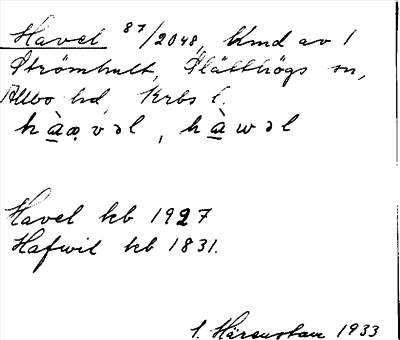 Havel 87/2048, Umd av 1
Strömhult, Slätthögs sn,
Allbo hd, Krbs l.
hàọvəl, hàwəl
Havel kb 1927
Hafwil kb 1831.
1933